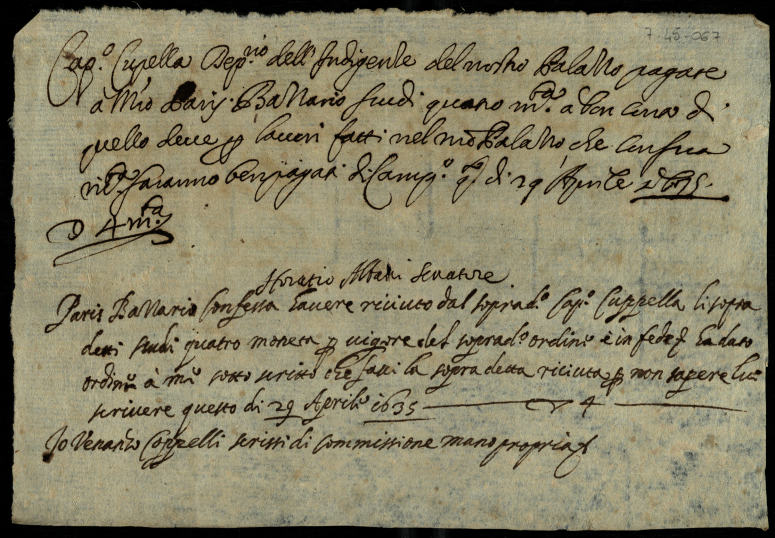 7-45-067
Cap.º Cupella Dep.rio dell'Indigente del nostro Palazzo pagate
a Mro Paris Battario scudi quatro m.ta a bon conto di
quello deve p lavori fatti nel nro Palazzo che con sua
ric.ta saranno ben pagati di Camp.º q.to di 29 Aprile 1635.
4 m.ta
Horatio Albani Senatore
Paris Battario Confessa havere riciuto dal soprad.º Cap.º Cuppella li sopra
detti scudi quatro moneta p vigore del soprad.º ordine è in fede ha dato
ordine à me sotto scritto che facci la sopra detta riciuta p non sapere lui
scrivere questo di 29 Aprile 1635 4
Io Venanzo Cappelli scrissi di commissione mano propria